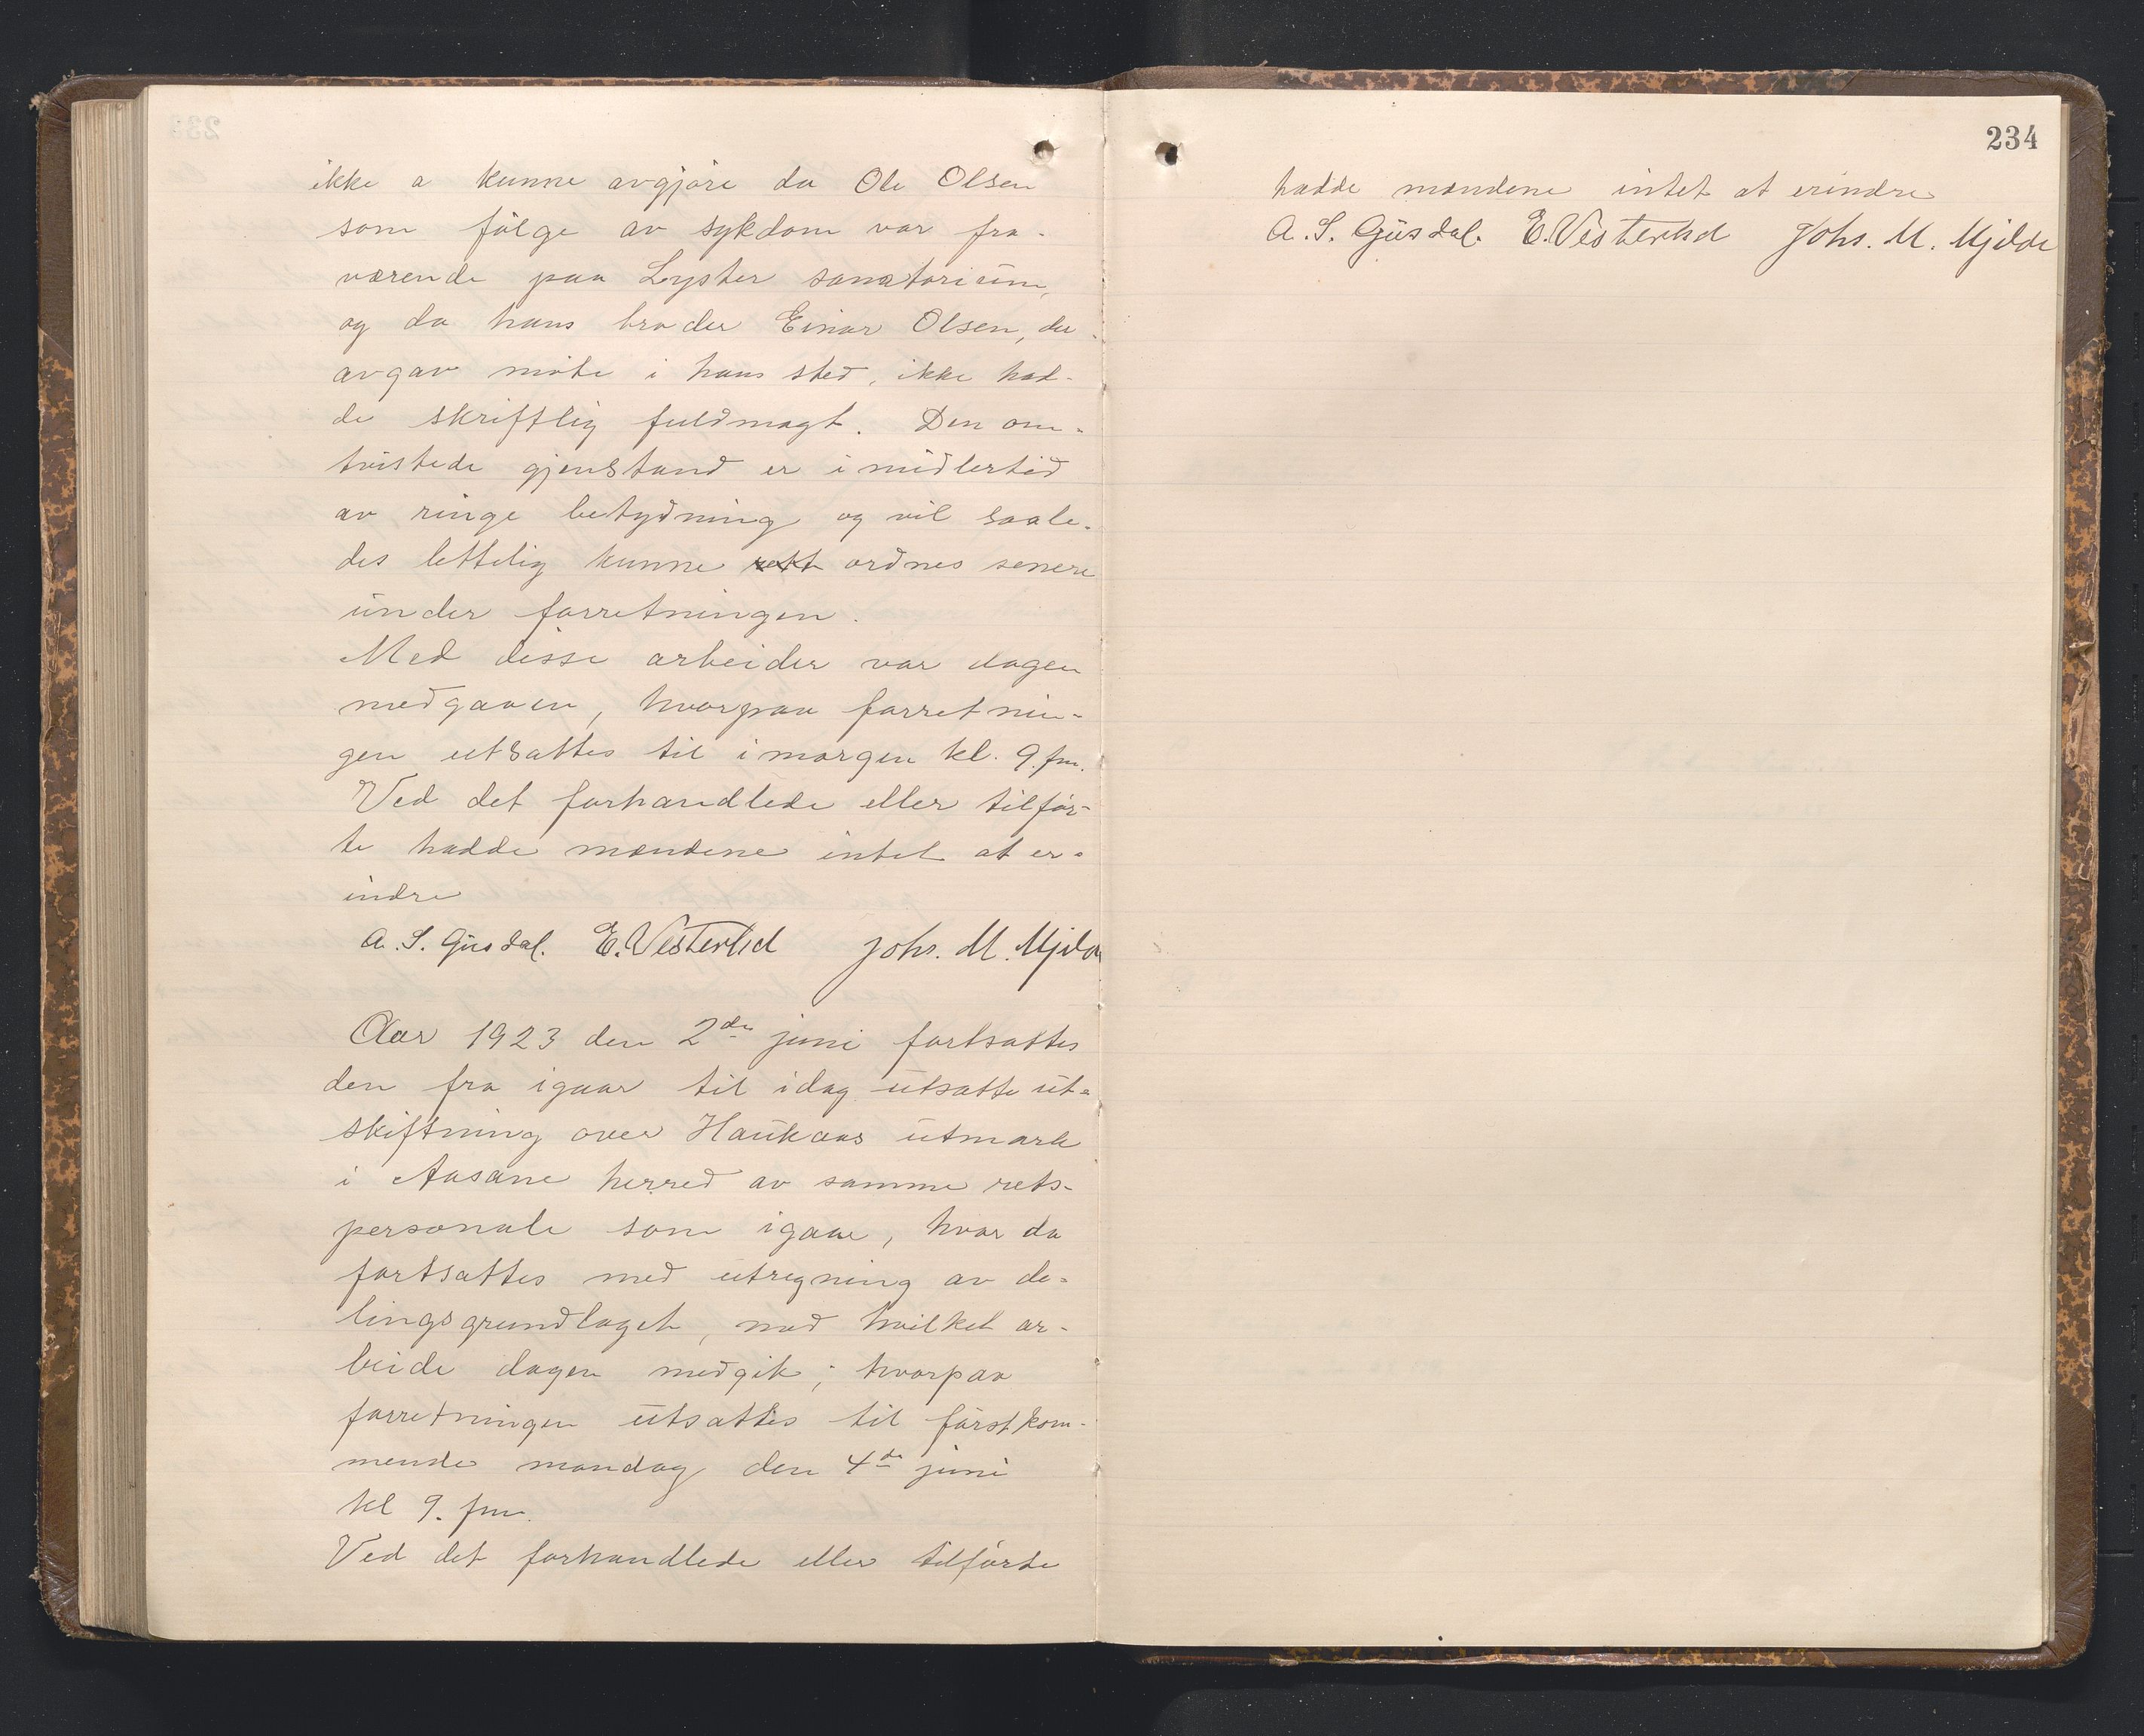 ikke a kunne avgjøre da Ole Olsen
som følge av sykdom var fra-
værende paa Lyster sanatorium,
og da hans broder Einar Olsen, der
avgav møte i hans sted, ikke had-
de skriftlig fuldmagt. Den om-
tvistede gjenstand er imidlertid
av ringe betydning og vil saale-
des lettelig kunne rett ordnes senere
under forretningen.
Med disse arbeider var dagen
medgaaen, hvorpaa forretnin-
gen utsattes til imorgen kl. 9. fm.
Ved det forhandlede eller tilfør-
te hadde mændene intet at er-
indre
A. S. Gusdal. E. Vesterlid Johs. M. Mjelde
Aar 1923 den 2den juni fortsattes
den fra igaar til idag utsatte ut-
skiftning over Haukaas utmark
i Aasane herred av samme rets-
personale som igaar, hvor da
fortsattes med utregning av de-
lingsgrundlaget, med hvilket ar-
beide dagen medgik; hvorpaa
forretningen utsattes til førstkom-
mende mandag den 4de juni
kl 9. fm.
Ved det forhandlede eller tilførte
234
hadde mændene intet at erindre
A. S. Gusdal. E. Vesterlid Johs. M. Mjelde